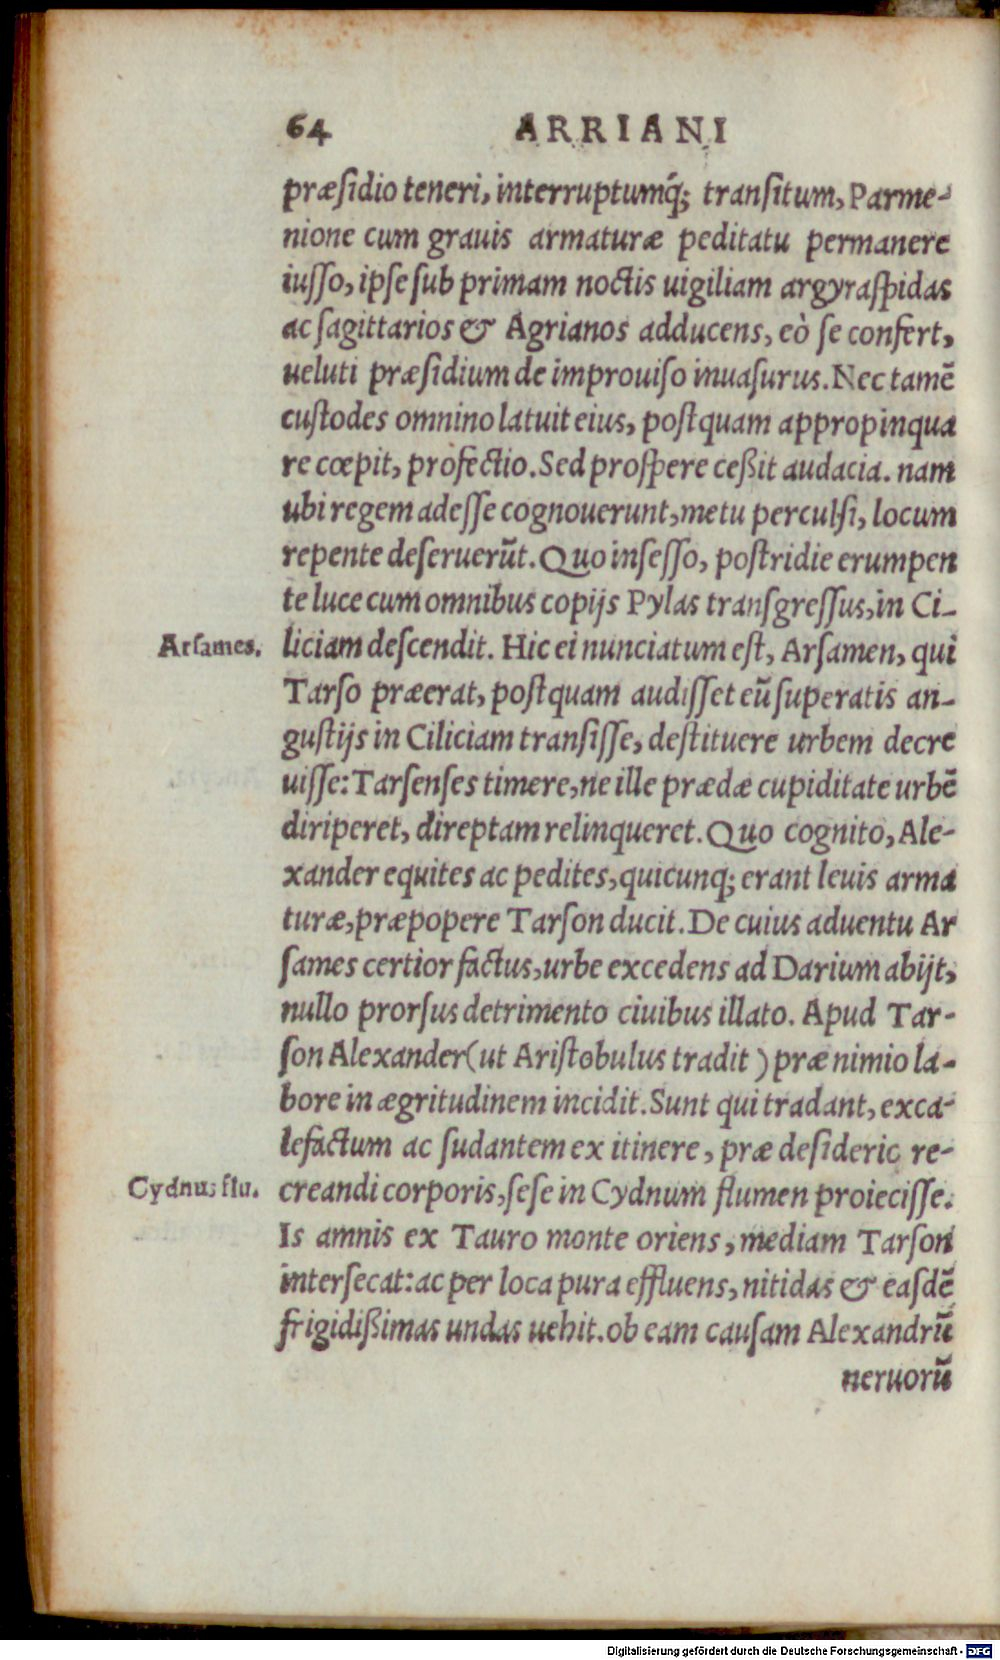 64 ARRIANI
præſidio teneri, interruptumq́; tranſitum, Parme-
nione cum grauis armaturæ peditatu permanere
iuſſo, ipſe ſub primam noctis uigiliam argyraſpidas
ac ſagittarios & Agrianos adducens, eò ſe confert,
ueluti præſidium de improuiſo inuaſurus. Nec tamẽ
cuſtodes omnino latuit eius, poſtquam appropinqua
re cœpit, profectio. Sed proſpere ceßit audacia. nam
ubi regem adeſſe cognouerunt, metu perculſi, locum
repente deſeruerũt. Quo inſeſſo, poſtridie erumpen
te luce cum omnibus copijs Pylas tranſgreſſus, in Ci-
Arſames. liciam deſcendit. Hic ei nunciatum eſt, Arſamen, qui
Tarſo præerat, poſtquam audiſſet eũ ſuperatis an-
guſtijs in Ciliciam tranſiſſe, deſtituere urbem decre
uiſſe: Tarſenſes timere, ne ille prædæ cupiditate urbẽ
diriperet, direptam relinqueret. Quo cognito, Ale-
xander equites ac pedites, quicunq; erant leuis arma
turæ, præpopere Tarſon ducit. De cuius aduentu Ar
ſames certior factus, urbe excedens ad Darium abijt,
nullo prorſus detrimento ciuibus illato. Apud Tar-
ſon Alexander (ut Ariſtobulus tradit) præ nimio la-
bore in ægritudinem incidit. Sunt qui tradant, exca-
lefactum ac ſudantem ex itinere, præ deſiderio re-
Cydnus flu. creandi corporis, ſeſe in Cydnum flumen proieciſſe.
Is amnis ex Tauro monte oriens, mediam Tarſon
interſecat: ac per loca pura effluens, nitidas & eaſdẽ
frigidißimas undas uehit. ob eam cauſam Alexandrũ
neruorũ
Digitalisierung gefördert durch die Deutsche Forschungsgemeinschaft - DFG